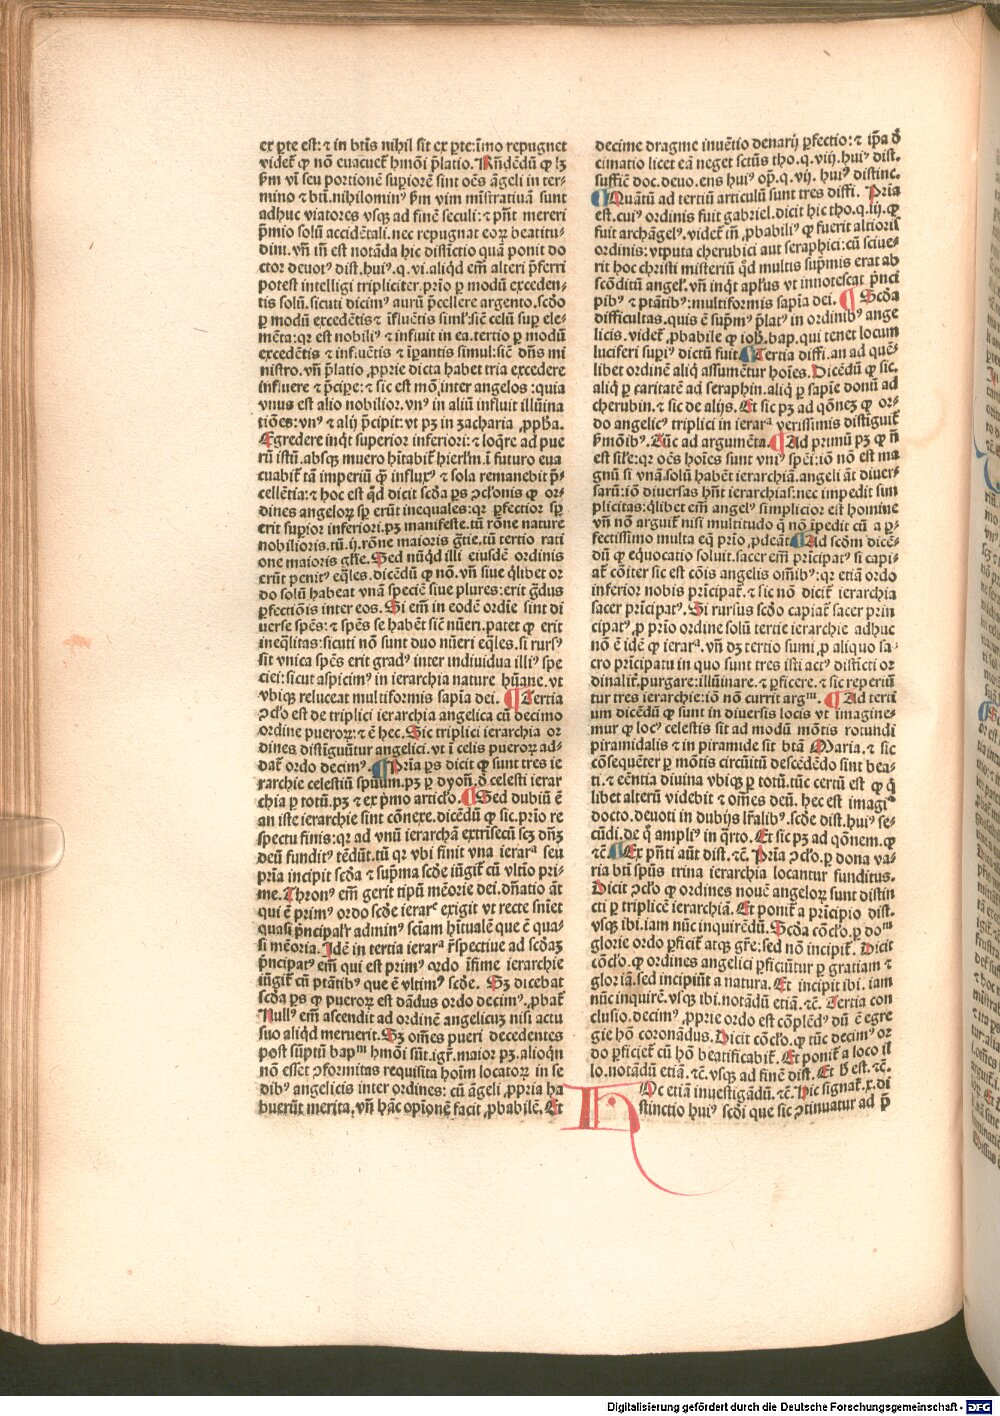 ex ꝑte est: ⁊ in btīs nihil sit ex ꝑte: īmo repugnet
videt᷑ ꝙ nō euacuet᷑ hmōi p̄latio. Rn̄dēdū ꝙ lꝫ
ẜm vī seu portionē supiorē sint oēs āgeli in ter-
mino ⁊ btī. nihilominꝰ ẜm vim mīstratiuā sunt
adhuc viatores vsqꝫ ad finē seculi: ⁊ pn̄t mereri
p̄mio solū accidētali. nec repugnat eoꝝ beatitu-
dini. vn̄ in est notāda hic distīctio quā ponit do
ctor deuotꝰ dist. huiꝰ. q. vi. aliqd em̄ alteri p̄ferri
potest intelligi tripliciter. prīo ꝑ modū exceden-
tis solū. sicuti dicimꝰ aurū p̄cellere argento. scd̄o
ꝑ modū excedētis ⁊ īfluētis siml᷑: sic̄ celū sup ele-
mēta: qr est nobiliꝰ ⁊ influit in ea. tertio ꝑ modū
excedētis ⁊ influētis ⁊ īpantis simul: sic̄ dn̄s mi
nistro. vn̄ p̄latio ꝓprie dicta habet tria excedere
influere ⁊ p̄cipe: ⁊ sic est mō inter angelos: quia
vnus est alio nobilior. vnꝰ in aliū influit illūina
tiōes: vnꝰ ⁊ alij p̄cipit: vt pꝫ in zacharia ꝓpha.
Egredere inqt superior inferiori: ⁊ loqre ad pue
rū istū. absqꝫ muro hītabit᷑ hierlm̄. ī futuro eua
cuabit᷑ tā imperiū ꝙ̄ influxꝰ ⁊ sola remanebit p̄-
cellētia: ⁊ hoc est qd̄ dicit scd̄a ꝑs ꝯclōnis ꝙ or-
dines angeloꝝ sp̄ erūt inequales: qr ꝑfectior sp̄
erit supior inferiori. pꝫ manifeste. tū rōne nature
nobilioris. tū. ij. rōne maioris gr̄tie. tū tertio rati
one maioris gl᷑ie. Sed nūqd illi eiusdē ordinis
erūt penitꝰ eq̄les. dicēdū ꝙ nō. vn̄ siue qlibet or
do solū habeat vnā speciē siue plures: erit gr̄dus
ꝑfectiōis inter eos. Si em̄ in eodē ordīe sint di
uerse spēs: ⁊ spēs se habēt sic̄ nūeri. patet ꝙ erit
ineq̄litas: sicuti nō sunt duo nūeri eq̄les. si rursꝰ
sit vnica spēs erit gradꝰ inter indiuidua illiꝰ spe
ciei: sicut aspicimꝰ in ierarchia nature hūane. vt
vbiqꝫ reluceat multiformis sapīa dei. Tertia
ꝯclo est de triplici ierarchia angelica cū decimo
ordine pueroꝝ: ⁊ ē hec. Sic triplici ierarchia or
dines distīguūtur angelici. vt ī celis pueroꝝ ad-
dat᷑ ordo decimꝰ. Prīa ꝑs dicit ꝙ sunt tres ie
rarchie celestiū spūum. pꝫ ꝑ dyon̄. d̄ celesti ierar
chia ꝑ totū. pꝫ ⁊ ex p̄mo articl̄o. Sed dubiū ē
an iste ierarchie sint cōnexe. dicēdū ꝙ sic. prīo re
spectu finis: qr ad vnū ierarchā extrīsecū scꝫ dn̄ꝫ
deū funditꝰ tēdūt. tū qr vbi finit vna ierarᵃ seu
prīa incipit scd̄a ⁊ sup̄ma scd̄e iūgit᷑ cū vltīo pri-
me. Thronꝰ em̄ gerit tipū mēorie dei. dn̄atio āt
qui ē primꝰ ordo scd̄e ierarᵉ exigit vt recte sn̄iet
quasi p̄ncipal᷑r adminꝰ sciam hītualē que ē qua-
si mēoria. Idē in tertia ierarᵃ r̄spectiue ad scd̄aꝫ
p̄ncipatꝰ em̄ qui est primꝰ ordo īfime ierarchie
iūgit᷑ cū ptātibꝰ que ē vltimꝰ scd̄e. Sꝫ dicebat
scd̄a ꝑs ꝙ pueroꝝ est dādus ordo decimꝰ. ꝓbat᷑
Nullꝰ em̄ ascendit ad ordinē angelicuꝫ nisi actu
suo aliqd meruerit. Sꝫ om̄es pueri decedentes
post sūptū bapᵐ hmōi sūt. igr̄. maior pꝫ. alioqn
nō esset ꝯformitas requisita hoīm locatoꝝ in se
dibꝰ angelicis inter ordines: cū āgeli ꝓpria ha
buerūt merita. vn̄ hāc opīonē facit ꝓbabilē. Et
decime dragme inuētio denarij ꝑfectio: ⁊ ip̄a d̄
cimatio licet eā neget sctūs tho. q. vij. huiꝰ dist.
suffiē doc. deuo. ens huiꝰ op̄. q. vij. huiꝰ distinc.
Quātū ad tertiū articulū sunt tres diffi. Prīa
est. cuiꝰ ordinis fuit gabriel. dicit hic tho. q. iij. ꝙ
fuit archāgelꝰ. videt᷑ tn̄ ꝓbabiliꝰ ꝙ fuerit altioris
ordinis: vtputa cherubici aut seraphici: cū sciue-
rit hoc christi misteriū qd̄ multis sup̄mis erat ab
scōditū angel᷑. vn̄ inqt aplꝰus vt innotescat p̄nci
pibꝰ ⁊ ptātibꝰ: multiformis sapīa dei. Scd̄a
difficultas. quis ē sup̄mꝰ p̄latꝰ in ordinibꝰ ange
licis. videt᷑ ꝓbabile ꝙ ioh̄. bap. qui tenet locum
luciferi supiꝰ dictū fuit. Tertia diffi. an ad quē-
libet ordinē aliq̄ assumētur hoīes. Dicēdū ꝙ sic.
aliq̄ ꝑ caritatē ad seraphin. aliq̄ ꝑ sapīe donū ad
cherubin. ⁊ sic de alijs. Et sic pꝫ ad qōneꝫ ꝙ or-
do angelicꝰ triplici in ierarᵃ verissimis distīguit᷑
ẜmōibꝰ. Tūc ad argumēta. Ad primū pꝫ ꝙ nō
est sil᷑e: qr oēs hoīes sunt vniꝰ spēi: iō nō est ma
gnū si vnā solū habēt ierarchiā. angeli āt diuer-
sarū: iō diuersas hn̄t ierarchias: nec impedit sim
plicitas: qlibet em̄ angelꝰ simplicior est homine
vn̄ nō arguit᷑ nisi multitudo q̄ nō īpedit cū a ꝑ-
fectissimo multa eq̄ prīo ꝓdeāt. Ad scd̄m dicē-
dū ꝙ equocatio soluit. sacer em̄ prīcipatꝰ si capi-
at᷑ cōiter sic est cōis angelis om̄ibꝰ: qr etiā ordo
inferior nobis prīcipat᷑. ⁊ sic nō dicit᷑ ierarchia
sacer prīcipatꝰ. Si rursus scd̄o capiat᷑ sacer prin
cipatꝰ ꝓ prīo ordine solū tertie ierarchie adhuc
nō ē idē ꝙ ierarᵃ. vn̄ dꝫ tertio sumi ꝓ aliquo sa-
cro prīcipatu in quo sunt tres isti actꝰ distīcti or
dinalit᷑. purgare: illūinare. ⁊ ꝑficere. ⁊ sic reperiū
tur tres ierarchie: iō nō currit argᵐ. Ad terti
um dicēdū ꝙ sunt in diuersis locis vt imagine-
mur ꝙ locꝰ celestis sit ad modū mōtis rotundi
piramidalis ⁊ in piramide sit btā Maria. ⁊ sic
cōsequēter ꝑ mōtis circūitū descēdēdo sint bea-
ti. ⁊ eēntia diuina vbiqꝫ ꝑ totū. tūc certū est ꝙ q̄
libet alterū videbit ⁊ om̄es deū. hec est imagiᵒ
docto. deuoti in dubijs lr̄alibꝰ. scd̄e dist. huiꝰ se-
cūdi. de q̄ ampliꝰ in q̄rto. Et sic pꝫ ad qōnem. ꝙ
⁊c̄. Ex pn̄ti aūt dist. ⁊c̄. Prīa ꝯclo. ꝑ dona va-
ria btī spūs trina ierarchia locantur funditus.
Dicit ꝯclo ꝙ ordines nouē angeloꝝ sunt distin
cti ꝑ triplicē ierarchiā. Et ponit᷑ a prīcipio dist.
vsqꝫ ibi. iam nūc inquirēdū. Scd̄a cōclo. ꝑ doᵐ
glorie ordo ꝑficit᷑ atqꝫ gr̄e: sed nō incipit᷑. Dicit
cōclo. ꝙ ordines angelici ꝑficiūtur ꝑ gratiam ⁊
gloriā. sed incipiūt a natura. Et incipit ibi. iam
nūc inquirē. vsqꝫ ibi. notādū etiā. ⁊c̄. Tertia con
clusio. decimꝰ ꝓprie ordo est cōplēdꝰ dū ē egre
gie hō coronādus. Dicit cōclo. ꝙ tūc decimꝰ or
do ꝑficiet᷑ cū hō beatificabit᷑. Et ponit᷑ a loco il
lo. notādū etiā. ⁊c̄. vsqꝫ ad finē dist. Et h̄ est. ⁊c̄.
Hoc etiā inuestigādū. ⁊c̄. Hic signat᷑. x. di
stinctio huiꝰ scd̄i que sic ꝯtinuatur ad p̄
Digitalisierung gefördert durch die Deutsche Forschungsgemeinschaft - DFG